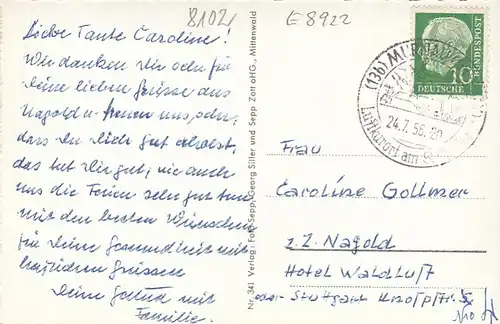 8102
E 8922
Liebe Tante Caroline!
Wir danken Dir sehr für
Deine lieben Grüsse aus
Nagold u. freuen uns, sehr,
dass Du Dich gut erholst,
das tut Dir gut, wie auch
uns die Ferien sehr gut tun.
mit den besten Wünschen
für Deine Gesundheit mit
herzlichen Grüssen
Deine mit
Familie.
Nr. 341 Verlag: Foto-Sepp/Georg Siller und Sepp Zott oHG., Mittenwald
DEUTSCHE BUNDESPOST
10
(13b) MURNAU
24.7.56.-20
Luftkurort am
Frau
Caroline Gollmer
z. Z. Nagold
Hotel Waldluft
Stuttgart